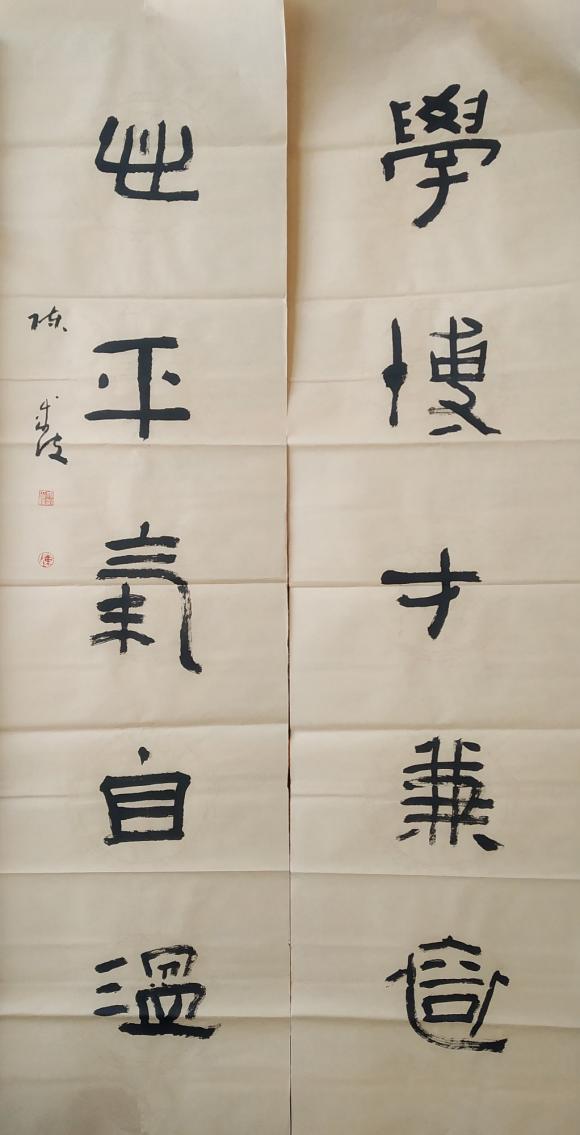 學博才兼裕
心平氣自溫
陈